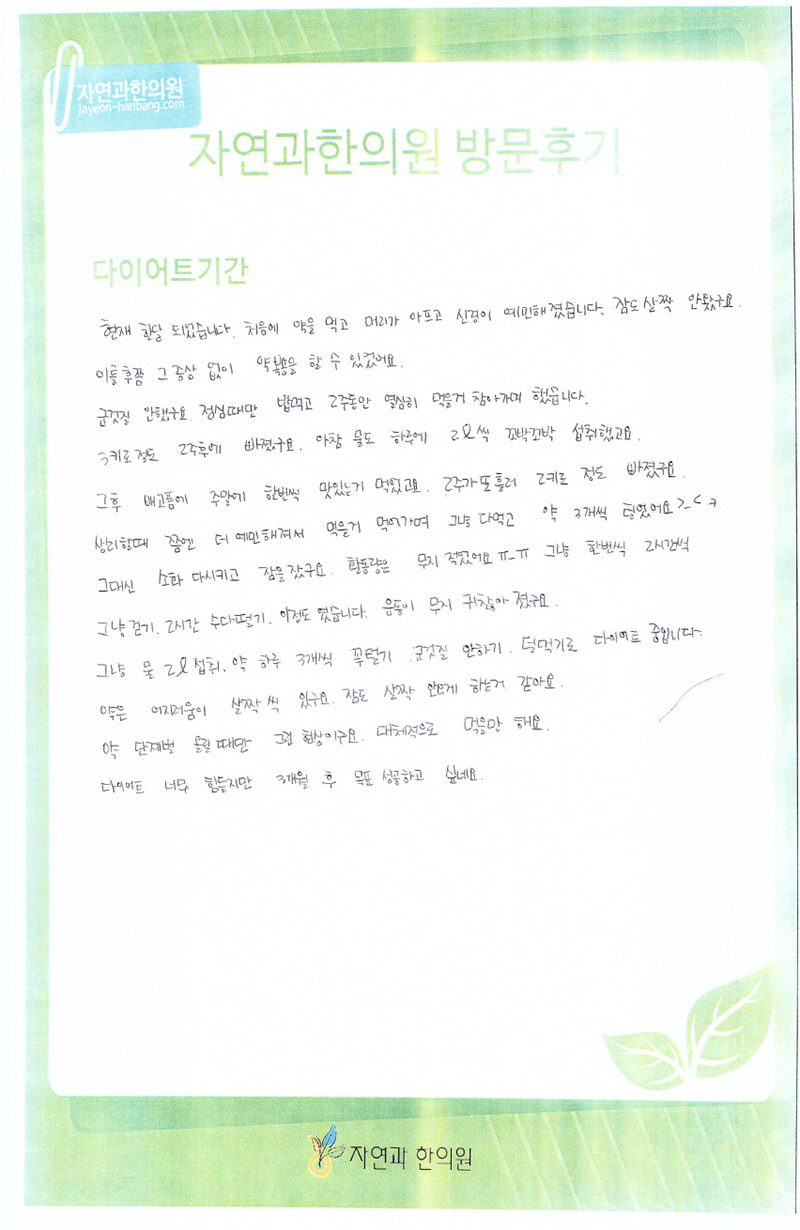 자연과한의원
jayeon-hanbang.com
자연과한의원 방문후기
다이어트기간
현재 한달 되었습니다. 처음에 약을 먹고 머리가 아프고 신경이 예민해졌습니다. 잠도 살짝 안왔구요.
이틀후쯤 그 증상 없이 약복용을 할 수 있었어요.
군것질 안했구요. 점심때만 밥먹고 2주동안 열심히 먹을거 참아가며 했습니다.
3키로정도 2주후에 빠졌구요. 아참 물도 하루에 2ℓ씩 꼬박꼬박 섭취했고요.
그후 배고픔에 주말에 한번씩 맛있는거 먹었고요. 2주가 또 흘러 2키로 정도 빠졌구요.
생리할때 쯤엔 더 예민해져서 먹을거 먹어가며 그냥 다먹고 약 3개씩 털었어요 >_<
그대신 소화 다시키고 잠을 잤구요. 활동량은 무지 적었어요 ㅠ_ㅠ 그냥 한번씩 2시간씩
그냥 걷기. 2시간 수다떨기. 이정도 였습니다. 운동이 무지 귀찮아 졌구요.
그냥 물 2ℓ 섭취. 약 하루 3개씩 꼭털기. 군것질 안하기. 덜먹기로 다이어트 중입니다.
약은 어지러움이 살짝씩 있구요. 잠도 살짝 안오게 하는거 같아요.
약 단계별 올릴때만 그런 현상이구요. 대체적으로 먹을만 해요.
다이어트 너무 힘들지만 3개월 후 목표 성공하고 싶네요.
자연과 한의원